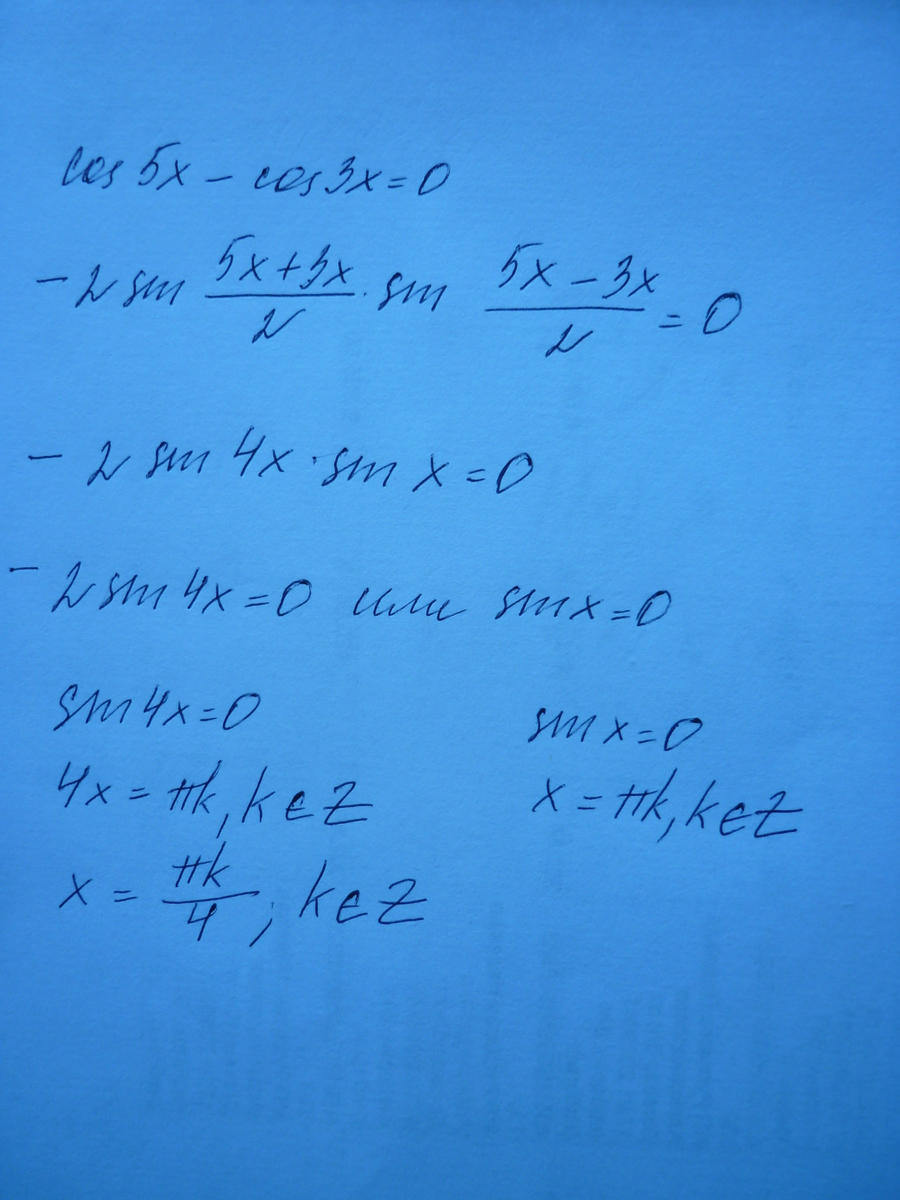 cos 5x - cos 3x = 0
-2 sin (5x+3x)/2 · sin (5x-3x)/2 = 0
-2 sin 4x · sin x = 0
-2 sin 4x = 0 или sin x = 0
sin 4x = 0 sin x = 0
4x = πk, k ∈ Z x = πk, k ∈ Z
x = πk/4 ; k ∈ Z